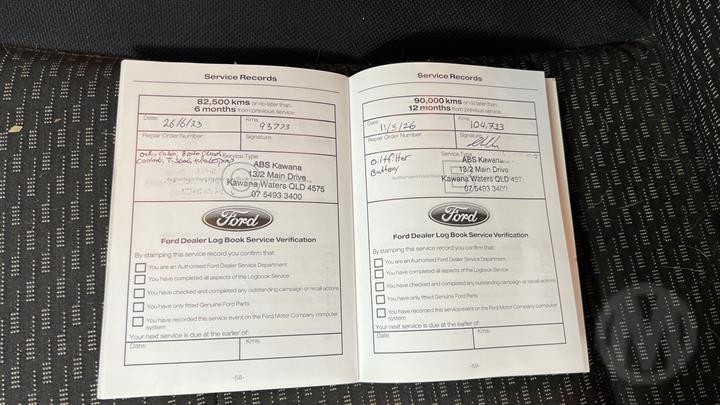 Service Records
82,500 kms or no later than
6 months from previous service
Date: 26/6/23
Kms: 93723
Repair Order Number:
Signature:
Service Type
ABS Kawana
13/2 Main Drive
Kawana Waters QLD 4575
07 5493 3400
Ford
Ford Dealer Log Book Service Verification
By stamping this service record you confirm that:
You are an Authorised Ford Dealer Service Department
You have completed all aspects of the Logbook Service
You have checked and completed any outstanding campaign or recall actions
You have only fitted Genuine Ford Parts
You have recorded this service event on the Ford Motor Company computer
system
Your next service is due at the earlier of:
Date:
Kms:
-58-
Service Records
90,000 kms or no later than
12 months from previous service
Date: 11/3/26
Kms: 104,733
Repair Order Number:
Signature:
Oil+filter
Battery
Service Type
ABS Kawana
13/2 Main Drive
Kawana Waters QLD 457
07 5493 3400
Ford
Ford Dealer Log Book Service Verification
By stamping this service record you confirm that:
You are an Authorised Ford Dealer Service Department
You have completed all aspects of the Logbook Service
You have checked and completed any outstanding campaign or recall actions
You have only fitted Genuine Ford Parts
You have recorded this service event on the Ford Motor Company computer
system
Your next service is due at the earlier of:
Date:
Kms:
-59-